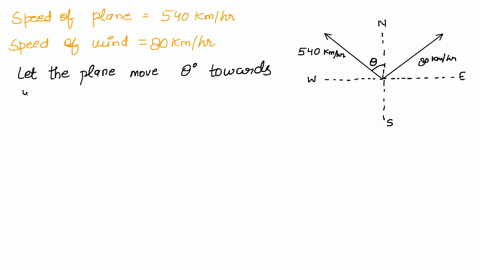 Speed of plane = 540 Km/hr
Speed of wind = 80 Km/hr
Let the plane move θ° towards
N
540 Km/hr
θ
80 Km/hr
W
E
S